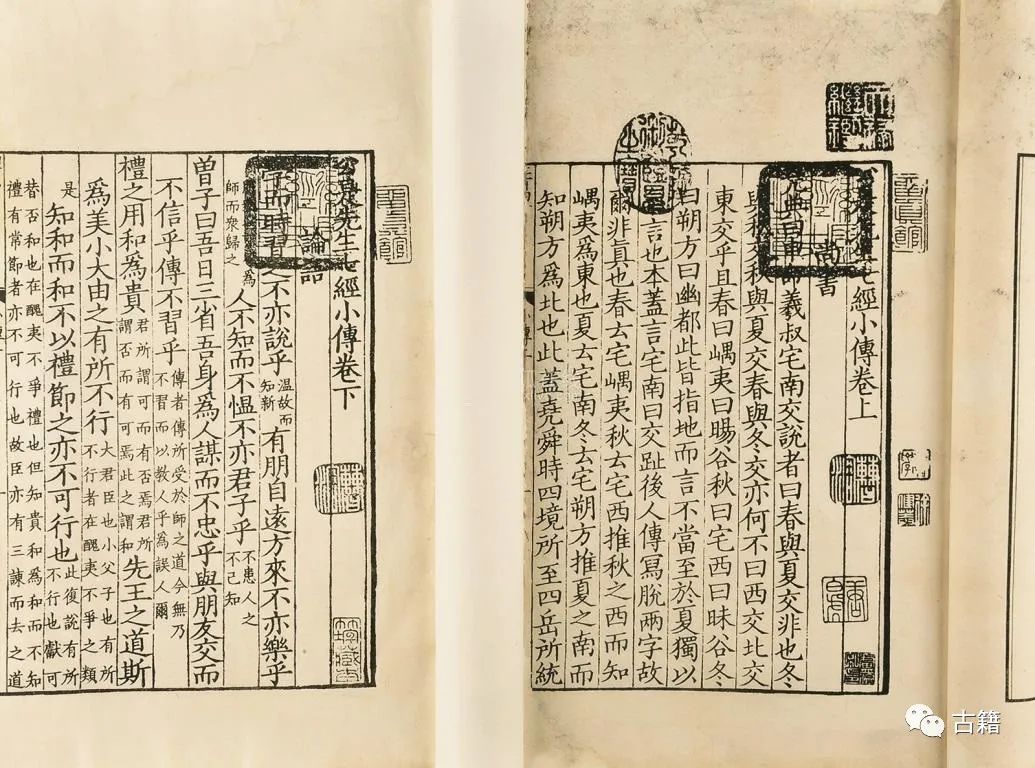 公是先生七經小傳卷上
尚書
堯典曰申命羲叔宅南交說者曰春與夏交非也冬
與秋交秋與夏交春與冬交亦何不曰西交北交
東交乎且春曰嵎夷曰暘谷秋曰宅西曰昧谷冬
曰朔方曰幽都此皆指地而言不當至於夏獨以
言也本蓋言宅南曰交趾後人傳寫脫兩字故
爾非真也春云宅嵎夷秋云宅西推秋之西而知
嵎夷爲東也夏云宅南冬云宅朔方推夏之南而
知朔方爲北也此蓋堯舜時四境所至四岳所統
公是先生七經小傳卷下
論語
學而時習之不亦說乎溫故而知新有朋自遠方來不亦樂乎
爲師而衆歸之人不知而不慍不亦君子乎不患人之不己知
曾子曰吾日三省吾身爲人謀而不忠乎與朋友交而
不信乎傳不習乎傳者傳所受於師之道今無乃不習而以教人乎爲誤人爾
禮之用和爲貴君所謂可而有否焉君所謂否而有可焉此之謂和先王之道斯
爲美小大由之有所不行大君臣也小父子也有所不行者在醜夷不爭之類
是知和而和不以禮節之亦不可行也此復說有所不行也獻可
替否和也在醜夷不爭禮也但知貴和爲和而不知
禮有常節者亦不可行也故臣亦有三諫而去之道
古籍